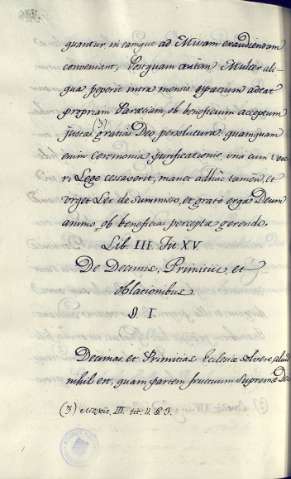 quantur, ni tamque ad Missam exaudiendam
conveniant, Postquam autem Mulier ali-
qua peperit intra mensis spatium adeat
propriam Paroeciam, ob beneficium acceptum
justas gratias Deo persolutura: quamquam
enim Ceremonia purificationis una cum vete-
ri Lege cessaverit, manet adhuc tamen, et
urget Lex de summiso, et grato erga Deum
animo, ob beneficia percepta gerendo.
Lib III. Tit XV
De Decimis, Primitiis, et
oblationibus
§ I.
Decimas et Primitias Ecclesiæ solvere, aliud
nihil est, quam partem fructuum Supremo
(3) Mexic. III. tit. II. § 3.